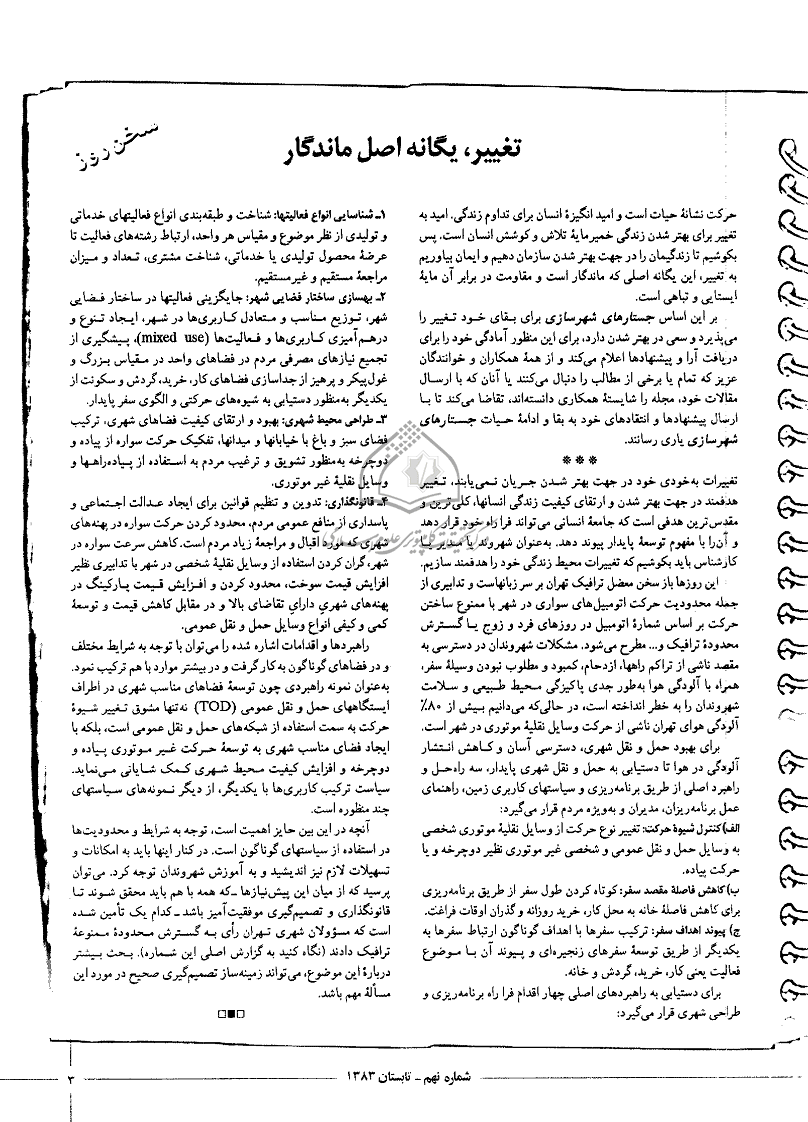 سخن روز
تغییر، یگانه اصل ماندگار
حرکت نشانهٔ حیات است و امید انگیزهٔ انسان برای تداوم زندگی. امید به
تغییر برای بهتر شدن زندگی خمیرمایهٔ تلاش و کوشش انسان است. پس
بکوشیم تا زندگیمان را در جهت بهتر شدن سازمان دهیم و ایمان بیاوریم
به تغییر، این یگانه اصلی که ماندگار است و مقاومت در برابر آن مایهٔ
ایستایی و تباهی است.
بر این اساس جستارهای شهرسازی برای بقای خود تغییر را
می‌پذیرد و سعی در بهتر شدن دارد، برای این منظور آمادگی خود را برای
دریافت آرا و پیشنهادها اعلام می‌کند و از همهٔ همکاران و خوانندگان
عزیز که تمام یا برخی از مطالب را دنبال می‌کنند یا آنان که با ارسال
مقالات خود، مجله را شایستهٔ همکاری دانسته‌اند، تقاضا می‌کند تا با
ارسال پیشنهادها و انتقادهای خود به بقا و ادامهٔ حیات جستارهای
شهرسازی یاری رسانند.
***
تغییرات به‌خودی خود در جهت بهتر شدن جریان نمی‌یابند، تغییر
هدفمند در جهت بهتر شدن و ارتقای کیفیت زندگی انسانها، کلی‌ترین و
مقدس‌ترین هدفی است که جامعهٔ انسانی می‌تواند فرا راه خود قرار دهد
و آن‌را با مفهوم توسعهٔ پایدار پیوند دهد. به‌عنوان شهروند یا مدیر یا
کارشناس باید بکوشیم که تغییرات محیط زندگی خود را هدفمند سازیم.
این روزها باز سخن معضل ترافیک تهران بر سر زبانهاست و تدابیری از
جمله محدودیت حرکت اتومبیل‌های سواری در شهر با ممنوع ساختن
حرکت بر اساس شمارهٔ اتومبیل در روزهای فرد و زوج یا گسترش
محدودهٔ ترافیک و... مطرح می‌شود. مشکلات شهروندان در دسترسی به
مقصد ناشی از تراکم راهها، ازدحام، کمبود و مطلوب نبودن وسیلهٔ سفر،
همراه با آلودگی هوا به‌طور جدی پاکیزگی محیط طبیعی و سلامت
شهروندان را به خطر انداخته است، در حالی‌که می‌دانیم بیش از ۸۰٪
آلودگی هوای تهران ناشی از حرکت وسایل نقلیهٔ موتوری در شهر است.
برای بهبود حمل و نقل شهری، دسترسی آسان و کاهش انتشار
آلودگی در هوا تا دستیابی به حمل و نقل شهری پایدار، سه راه‌حل و
راهبرد اصلی از طریق برنامه‌ریزی و سیاستهای کاربری زمین، راهنمای
عمل برنامه‌ریزان، مدیران و به‌ویژه مردم قرار می‌گیرد:
الف) کنترل شیوهٔ حرکت: تغییر نوع حرکت از وسایل نقلیهٔ موتوری شخصی
به وسایل حمل و نقل عمومی و شخصی غیر موتوری نظیر دوچرخه و یا
حرکت پیاده.
ب) کاهش فاصلهٔ مقصد سفر: کوتاه کردن طول سفر از طریق برنامه‌ریزی
برای کاهش فاصلهٔ خانه به محل کار، خرید روزانه و گذران اوقات فراغت.
ج) پیوند اهداف سفر: ترکیب سفرها با اهداف گوناگون ارتباط سفرها به
یکدیگر از طریق توسعهٔ سفرهای زنجیره‌ای و پیوند آن با موضوع
فعالیت یعنی کار، خرید، گردش و خانه.
برای دستیابی به راهبردهای اصلی چهار اقدام فرا راه برنامه‌ریزی و
طراحی شهری قرار می‌گیرد:
۱ـ شناسایی انواع فعالیتها: شناخت و طبقه‌بندی انواع فعالیتهای خدماتی
و تولیدی از نظر موضوع و مقیاس هر واحد، ارتباط رشته‌های فعالیت تا
عرضهٔ محصول تولیدی یا خدماتی، شناخت مشتری، تعداد و میزان
مراجعهٔ مستقیم و غیرمستقیم.
۲ـ بهسازی ساختار فضایی شهر: جایگزینی فعالیتها در ساختار فضایی
شهر، توزیع مناسب و متعادل کاربری‌ها در شهر، ایجاد تنوع و
درهم‌آمیزی کاربری‌ها و فعالیت‌ها (mixed use)، پیشگیری از
تجمیع نیازهای مصرفی مردم در فضاهای واحد در مقیاس بزرگ و
غول‌پیکر و پرهیز از جداسازی فضاهای کار، خرید، گردش و سکونت از
یکدیگر به‌منظور دستیابی به شیوه‌های حرکتی و الگوی سفر پایدار.
۳ـ طراحی محیط شهری: بهبود و ارتقای کیفیت فضاهای شهری، ترکیب
فضای سبز و باغ با خیابانها و میدانها، تفکیک حرکت سواره از پیاده و
دوچرخه به‌منظور تشویق و ترغیب مردم به استفاده از پیاده‌راهها و
وسایل نقلیهٔ غیر موتوری.
۴ـ قانونگذاری: تدوین و تنظیم قوانین برای ایجاد عدالت اجتماعی و
پاسداری از منافع عمومی مردم، محدود کردن حرکت سواره در پهنه‌های
شهری که مورد اقبال و مراجعهٔ زیاد مردم است. کاهش سرعت سواره در
شهر، گران کردن استفاده از وسایل نقلیهٔ شخصی در شهر با تدابیری نظیر
افزایش قیمت سوخت، محدود کردن و افزایش قیمت پارکینگ در
پهنه‌های شهری دارای تقاضای بالا و در مقابل کاهش قیمت و توسعهٔ
کمی و کیفی انواع وسایل حمل و نقل عمومی.
راهبردها و اقدامات اشاره شده را می‌توان با توجه به شرایط مختلف
و در فضاهای گوناگون به کار گرفت و در بیشتر موارد با هم ترکیب نمود.
به‌عنوان نمونه راهبردی چون توسعهٔ فضاهای مناسب شهری در اطراف
ایستگاههای حمل و نقل عمومی (TOD) نه‌تنها مشوق تغییر شیوهٔ
حرکت به سمت استفاده از شبکه‌های حمل و نقل عمومی است، بلکه با
ایجاد فضای مناسب شهری به توسعهٔ حرکت غیر موتوری پیاده و
دوچرخه و افزایش کیفیت محیط شهری کمک شایانی می‌نماید.
سیاست ترکیب کاربری‌ها با یکدیگر، از دیگر نمونه‌های سیاستهای
چند منظوره است.
آنچه در این بین حایز اهمیت است، توجه به شرایط و محدودیت‌ها
در استفاده از سیاستهای گوناگون است. در کنار اینها باید به امکانات و
تسهیلات لازم نیز اندیشید و به آموزش شهروندان توجه کرد. می‌توان
پرسید که از میان این پیش‌نیازها ـ که همه با هم باید محقق شوند تا
قانونگذاری و تصمیم‌گیری موفقیت‌آمیز باشد ـ کدام یک تأمین شده
است که مسؤولان شهری تهران رأی به گسترش محدودهٔ ممنوعهٔ
ترافیک دادند (نگاه کنید به گزارش اصلی این شماره). بحث بیشتر
دربارهٔ این موضوع، می‌تواند زمینه‌ساز تصمیم‌گیری صحیح در مورد این
مسألهٔ مهم باشد.
□■□
شماره نهم ـ تابستان ۱۳۸۳
۳